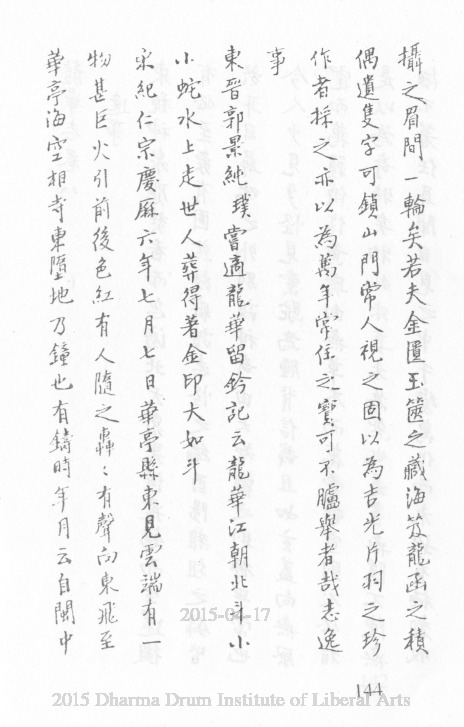 攝之眉間一輪矣若夫金匱玉篋之藏海笈龍函之積
偶遺隻字可鎖山門常人視之固以為吉光片羽之珍
作者採之亦以為萬年常住之寶可不臚舉者哉志逸
事
東晉郭景純璞嘗適龍華留鈐記云龍華江朝北斗小
小蛇水上走世人葬得著金印大如斗
宋紀仁宗慶厤六年七月七日華亭縣東見雲端有一
物甚巨火引前後色紅有人隨之轟〻有聲向東飛至
華亭海空相寺東墮地乃鐘也有鑄時年月云自閩中
144
2015-04-17
2015 Dharma Drum Institute of Liberal Arts